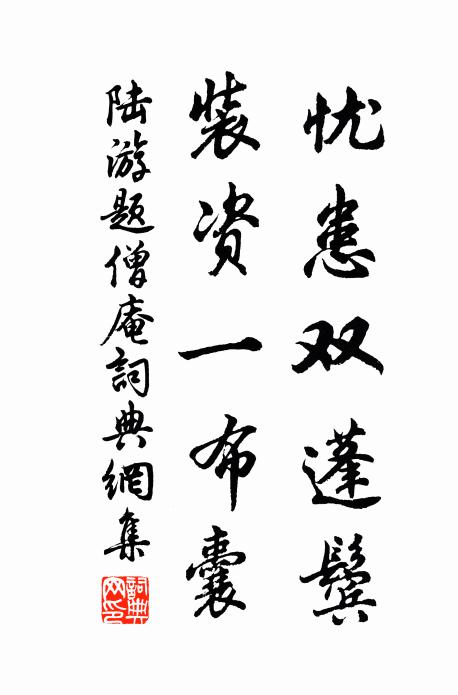 忧患双蓬鬓
装资一布囊
陆游题僧庵詞典網集
詞典网印